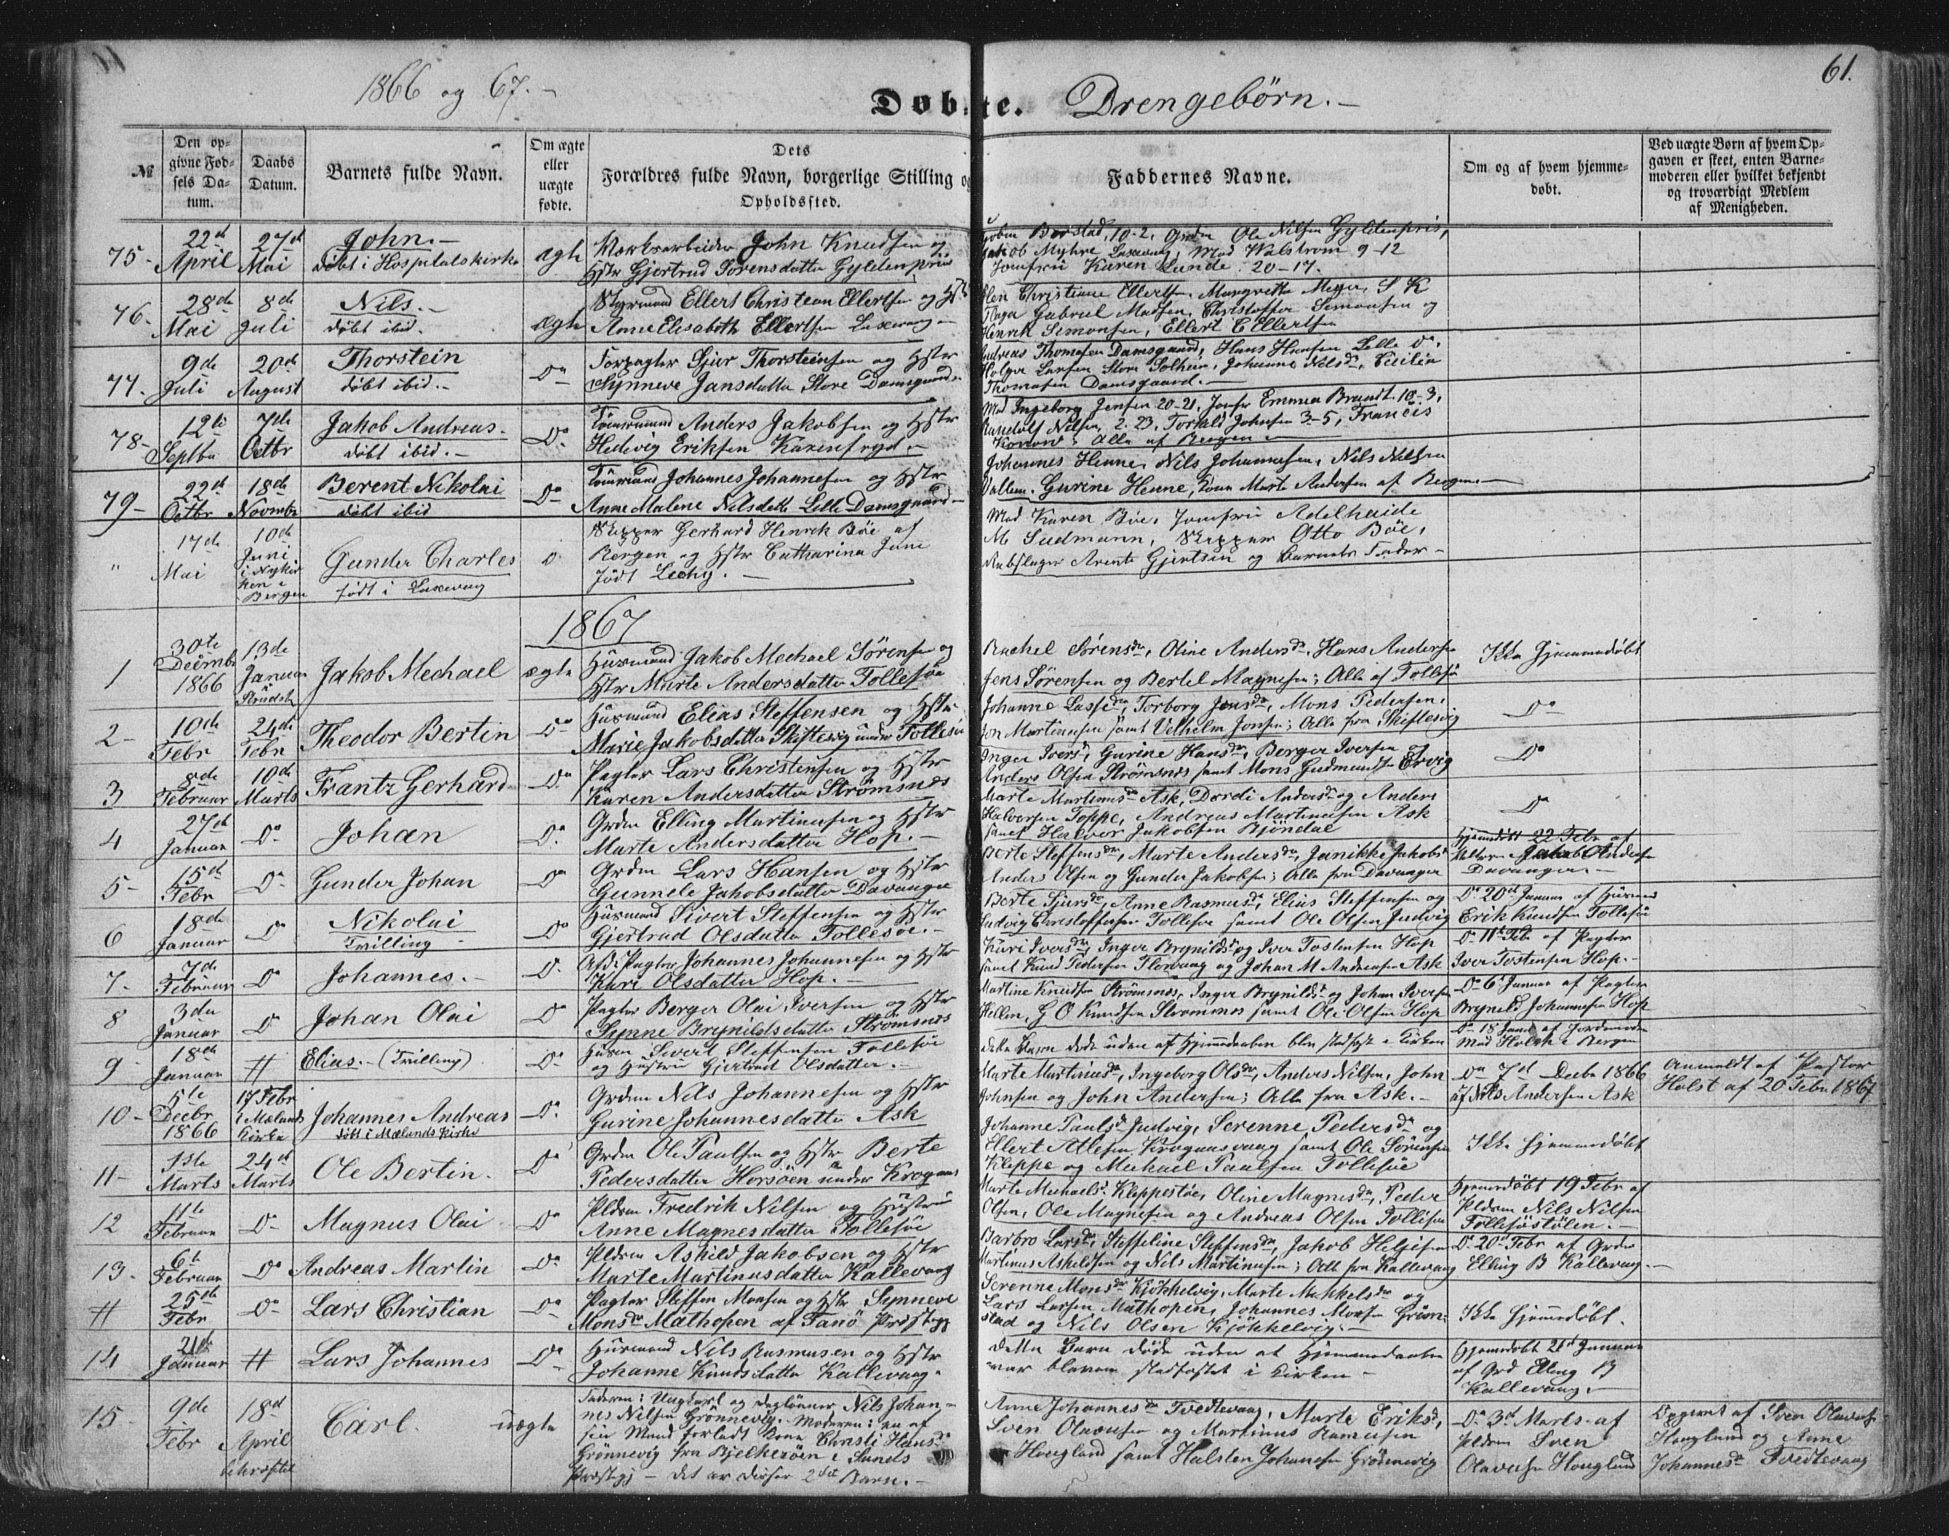 1866 og 67.-
Døbte. Drengebørn.-
61.
№
Den opgivne Fødsels Datum.
Daabs Datum.
Barnets fulde Navn.
Om ægte eller uægte fødte.
Dets Forældres fulde Navn, borgerlige Stilling og Opholdssted.
Faddernes Navne.
Om og af hvem hjemmedøbt.
Ved uægte Børn af hvem Opgaven er skeet, enten Barnemoderen eller hvilket bekjendt og troværdigt Medlem af Menigheden.
75- 22de April 27de Mai
John.-
døbt i Hospitalskirke
ægte
John Knudsen og
Hstr Gjertrud Sørensdatter Gyldenpris
Ole Nilsen Gyldenpris,
Jakob Myhre Laxevaag, Mad Walstrøm 9-12
Jomfru Karen Lunde 20-17.
76- 28de Mai 8de Juli
Nils.-
døbt ibid.
ægte
Styrmand Ellert Christian Ellertsen og Hstr
Anne Elisabeth Ellertsen Laxevaag-
Christiane Ellertsen, Margrethe Meyer, S K
Gabriel Madsen, Christoffer Simonsen og
Henrik Simonsen, Ellert C Ellertsen
77- 9de Juli 20de August
Thorstein
døbt ibid.-
Do
Forpagter Sjur Thorsteinsen og Hstr
Synneve Jansdatter Store Damsgaard-
Andreas Thomasen Damsgaard, Hans Hansen Lille Do
Holger Larsen Store Solheim, Johanne Nilsdr, Cecilia
Thomasen Damsgaard.-
78- 12te Septbr 7de Octbr
Jakob Andreas.
døbt ibid.-
Do
Tømrmand Anders Jakobsen og Hstr
Hedevig Eriksen Karenfryd.-
Mad Ingeborg Jensen 20-21, Jomfr Emma Brandt 10-3,
Randolf Nilsen, 2-23, Torkild Johnsen 3-5, Francis
Konow; Alle af Bergen-
79- 22de Octbr 18de Novembr
Berent Nikolai
døbt ibid
Do
Tømrmand Johannes Johannesen og Hstr
Anne Malene Nilsdatter Lille Damsgaard-
Johannes Henne, Nils Johannesen, Nils Nilsen
Gurine Henne, Marte Andersen af Bergen-
" 17de Mai 10de Juni i Nykirken i Bergen
Gunder Charles
født i Laxevaag
Skipper Gerhard Henrik Bøe af
Bergen og Hstr Catharina Jane
født
Mad Karen Bøe, Jomfru Adelhaide
M. Sudmann, Skipper Otto Bøe,
Rebslager Arent Gjertsen og Barnets Fader-
1867
1 30te Decembr 1866 13de Januar
Jakob Mechael
ægte
Husmand Jakob Mechael Sørensen og
Hstr Marte Andersdatter Follesøe
Rachel Sørensdr, Oline Andersdr, Hans Andersen
Jens Sørensen og Bertel Magnesen; Alle af Follesø
Ikke Hjemmedøbt
2- 10de Febr 24de Febr
Theodor Bertin
Do
Husmand Elias Steffensen og Hstr
Marie Jakobsdatter Skiftesvig under Follesø
Johanne Lassedr, Torborg Jonsdr, Mons Pedersen,
Jon Martinusen samt Velhelm Jonsen; Alle fra Skiftesvig
Do
3 8de Februar 10de Marts
Frantz Gerhard
Do
Pagter Lars Christensen og Hstr
Karen Andersdatter Strømsnes
Inger Iversdr, Gurine Hansdr, Berger Iversen
Anders Olsen Strømsnes samt Mons Gudmundsen Ervig
Do
4 27de Januar Do
Johan
Do
Grdm Elling Martinusen og Hstr
Marte Andersdatter Hop.-
Marte Martinusdr Ask, Dordi Andersdr og Anders
Halversen Toppe, Andreas Martinusen Ask
samt Halver Jakobsen Bjøndal
Do
5- 15de Febr Do
Gunder Johan
Do
Grdm Lars Hansen og Hstr
Gunnele Jakobsdatter Davanger
Berte Steffensdr, Marte Andersdr, Janikke Jakobsdr
Anders Olsen og Gunder Jakobsen; Alle fra Davanger
Hjemmedøbt 22 Febr af
Jakob Andersen
Davanger.-
6 18de Januar Do
Nikolai
Tvilling
Do
Husmand Sivert Steffensen og Hstr
Gjertrud Olsdatter Follesøe.-
Berte Sjursdr, Anne Rasmusdr, Elias Steffensen og
Ludvig Christoffersen Follesø samt Ole Olsen Judvig
Do 20de Januar af Husmand
Erik Knudsen Follesøe
7- 7de Februar Do
Johannes.
Do
Pagter Johannes Johannesen og Hstr
Kari Olsdatter Hop.-
Kari Iversdr, Inger Brynildsdr og Iver Tostensen Hop
samt Knud Pedersen Florvaag og Johan M Andersen Ask
Do 11te Febr af Pagter
Iver Tostensen Hop.-
8 3die Januar Do
Johan Olai
Do
Pagter Berger Olai Iversen og Hstr
Synne Brynildsdatter Strømsnes
Martine Knudsen Strømsnes, Inger Brynildsdr og Johan Iversen
Hellen, G O Knudsen Strømsnes samt Ole Olsen Hop
Do 6 Januar af Pagter
Brynild Johannesen Hop
9- 18de Januar #
Elias.- (Tvilling)
Do
Husm Sivert Steffensen Follesøe
og Hustru Gjertrud Olsdatter.-
dette Barn døde uden at Hjemmedaaben blev stadfæstet i Kirken
Do 18 Janr af Jordemoder
Mad Holck i Bergen
10- 5te Decbr 1866 17 Febr i Mælands Kirke
Johannes Andreas
døbt i Mælands Kirke
Do
Grdm Nils Johannesen og Hstr
Gurine Johannesdatter Ask
Marte Martinusdr, Ingeborg Olsdr, Anders Nilsen, John
Johnsen og John Andersen; Alle fra Ask.-
Do 7de Decbr 1866
af Nils Andersen Ask
Anmeldt af Pastor
Holst af 20 Febr 1867
11- 1ste Marts 24de Marts
Ole Bertin.
Do
Grdm Ole Paulsen og Hstr Berte
Pedersdatter Horsøen under Krogaas
Johanne Paulsdr Judvig, Serenne Pedersdr og
Ellert Atlesen Krognesvaag samt Ole Sørensen
Kleppe og Mechael Paulsen Follesøe
Ikke Hjemmedøbt
12 11te Februar Do
Magnus Olai
Do
Pldsm Fredrik Nilsen og Hustru
Anne Magnesdatter Follesøe
Marte Mechaelsdr Kleppestøe, Oline Magnesdr, Peder
Olsen, Ole Magnesen og Andreas Olsen Follesøe
Hjemmedøbt 19 Febr af
Pldsm Nils Nilsen
Follesøstølen.-
13- 6te Februar Do
Andreas Martin
Do
Pldsm Askild Jakobsen og Hstr
Marte Martinusdatter Kallevaag
Barbro Larsdr, Steffeline Steffensdr, Jakob Heljesen
Martinus Askildsen og Nils Martinusen; Alle fra Kallevaag
Do 20de Febr af Grdm
Elling B Kallevaag.-
# 25de Febr Do
Lars Christian
Do
Pagter Steffen Monsen og Hstr Synneve
Monsdr Mathopen af Fanø Præstegj
Serenne Monsdr Kjøkkelvig, Marte Mikkelsdr og
Lars Larsen Mathopen, Johannes Monsen Grimstad
og Nils Olsen Kjøkkelvig.-
Ikke Hjemmedøbt.
14 21de Januar #
Lars Johannes
Do
Husmand Nils Rasmusen og Hstr
Johanne Knudsdatter Kallevaag.
dette Barn døde uden at Hjemmedaaben
var bleven stadfæstet i Kirken-
Hjemmedøbt 21de Januar
af Grd Elling B
Kallevaag.-
15- 9de Febr 18de April
Carl.
uægte
Faderen: Ungkarl og Dagløner Nils Johannes
Nilsen Grønnevig. Moderen: en af
sin Mand forladt Kone Christi Hansdr
Grønnevig fra Bjelkerøen i Sunds
Præstegj- det er disses 2det Barn.-
Anne Johannesdr Tvedtevaag, Marte Eriksdr,
Sven Olausen og Martinus Rasmusen
Hougland samt Halsten Johannesen Grønnevig
Do 3de Marts af
Pldsm Sven
Olausen Hougland
Opgivet af Sven Olausen
Hougland og Anne
Johannesdr Tvedtevaag